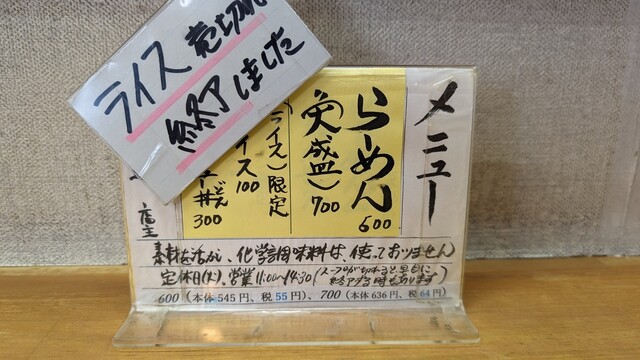 ライス売切れ
終了しました
メニュー
らーめん 600
(大盛) 700
(ライス)限定
イス 100
丼 どん 300
店主
素材を活かし、化学調味料は、使っておりません
定休日(火)、営業11:00〜14:30(スープが切れると早目に終了する時もあります)
600(本体545円、税55円)、700(本体636円、税64円)